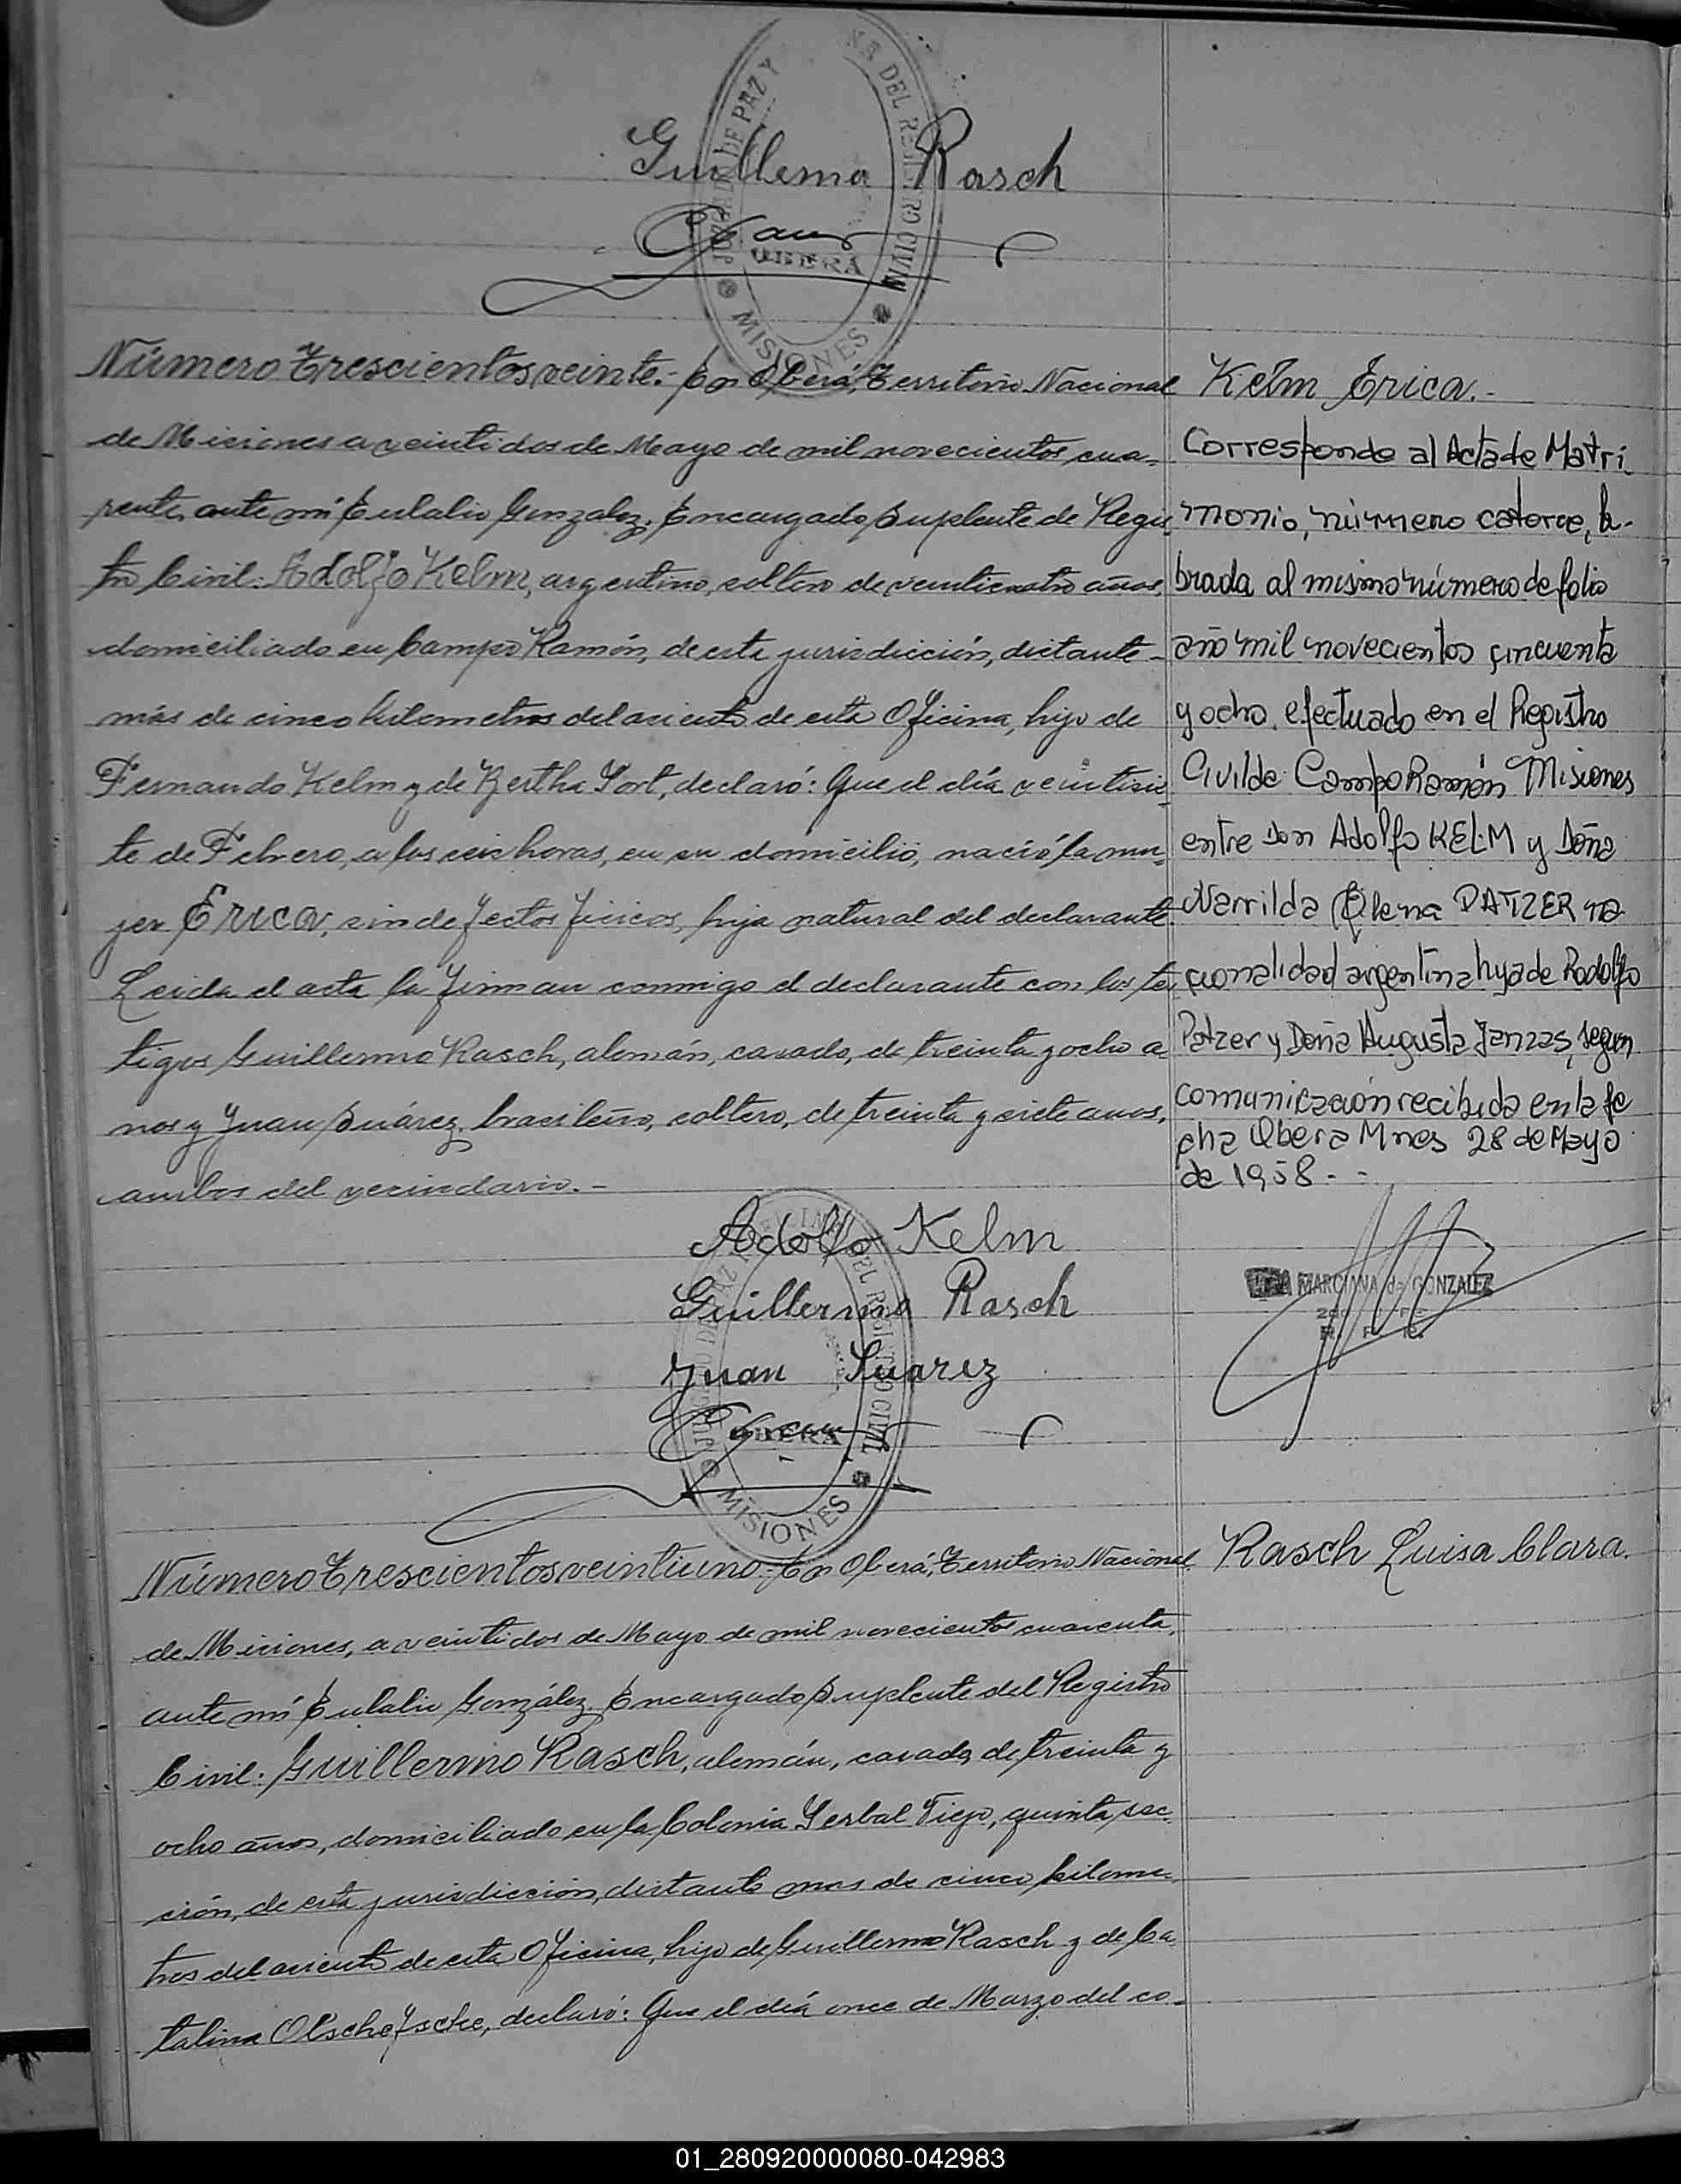 JUZGADO DE PAZ Y
NA DEL REGISTRO CIVIL
Guillermo Rasch
OBERA
MISIONES
Número Trescientos veinte.- En Oberá, Territorio Nacional
de Misiones a veintidos de Mayo de mil novecientos cua-
renta, ante mi Eulalio Gonzalez, Encargado Suplente de Regis-
tro Civil: Adolfo Kelm, argentino, soltero de veinticuatro años,
domiciliado en Campo Ramón, de esta jurisdicción, distante
más de cinco kilometros del asiento de esta Oficina, hijo de
Fernando Kelm y de Bertha Yort, declaró: Que el día veintisie-
te de Febrero, a las seis horas, en su domicilio, nació la mu-
jer Erica, sin defectos fisicos, hija natural del declarante.
Leida el acta la firman conmigo el declarante con los tes
tigos Guillermo Rasch, alemán, casado, de treinta y ocho a-
nos y Juan Suárez, brasileño, soltero, de treinta y siete anos,
ambos del vecindario.-
Kelm Erica.-
Corresponde al Acta de Matri
monio, número catorce, la-
brada al mismo número de folio
año mil novecientos cincuenta
y ocho. efectuado en el Registro
Civil de Campo Ramón Misiones
entre Don Adolfo KELM y Doña
Narrilda Elena PATZER na
cionalidad argentina hija de Rodolfo
Patzer y Doña Augusta Janzas, segun
comunicación recibida en la fe
cha Obera Mnes 28 de Mayo
de 1958.--
Adolfo Kelm
Guillermo Rasch
Juan Suarez
JUZGADO DE PAZ
DEL REGISTRO CIVIL
OBERA
MISIONES
MARCIANA de GONZALEZ
Número Trescientos veintiuno.- En Oberá, Territorio Nacional
de Misiones, a veintidos de Mayo de mil novecientos cuarenta,
ante mi Eulalio González, Encargado Suplente del Registro
Civil: Guillermo Rasch, alemán, casado, de treinta y
ocho años, domiciliado en la Colonia Yerbal Viejo, quinta sec-
ción, de esta jurisdicción, distante mas de cinco kilome-
tros del asiento de esta Oficina, hijo de Guillermo Rasch y de Ca
talina Olschefscke, declaró: Que el día once de Marzo del co-
Rasch Luisa Clara.
01_280920000080-042983